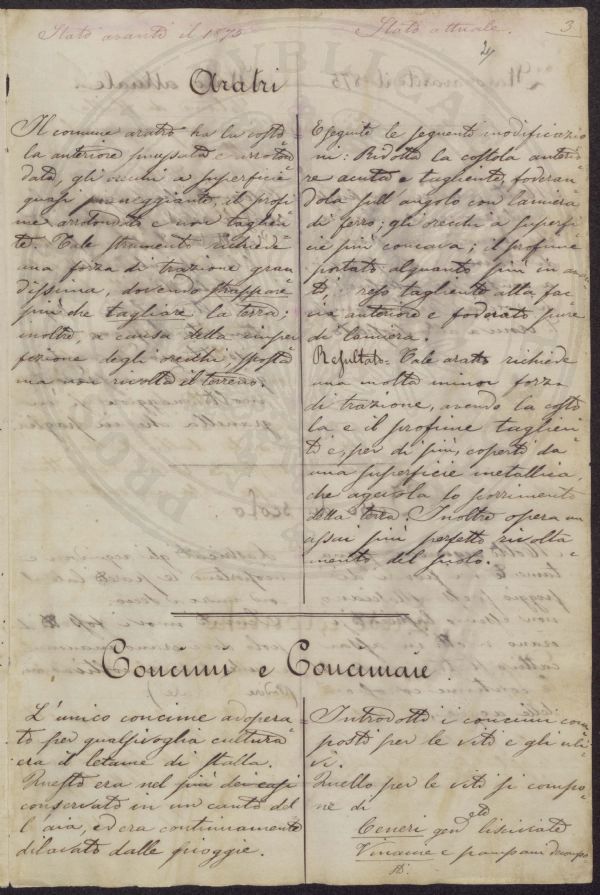 Stato avanti il 1873
Stato attuale.
3
Aratri
Il comune aratro ha la costo=
la anteriore smussata e arroton
data, gli orecchi a superficie
quasi pianeggiante, il profi=
me arrotondato e non taglien=
te. Tale strumento richiede
una forza di trazione gran
dissima, dovendo strappare
più che tagliare la terra;
inoltre, a causa della imper
fezione degli orecchi, sposta
ma non rivolta il terreno.
Eseguite le seguenti modificazio
ni: Ridotta la costola anterio=
re acuta e tagliente, foderan=
dola sull'angolo con lamiera
di ferro; gli orecchi a superfi=
cie più concava; il profime
portato alquanto più in avan=
ti, reso tagliente alla fac=
cia anteriore e foderato pure
di lamiera.
Resultato - Tale aratro richiede
una molto minor forza
di trazione, avendo la costo
la e il profime taglien
ti e, per di più, coperti da
una superficie metallica,
che agevola lo scorrimento
della terra. Inoltre opera un
assai più perfetto rivolta=
mento del suolo.
Concimi e Concimaie
L'unico concime adopera=
to per qualsivoglia cultura
era il letame di stalla.
Questo era nel più dei casi
conservato in un canto del
l'aia, ed era continuamente
dilavato dalle pioggie.
Introdotti i concimi com=
posti per le viti e gli uli=
vi.
Quello per le viti si compo=
ne di
Ceneri gen.te lisciviate
Vinacce e pampani decompo
sti.